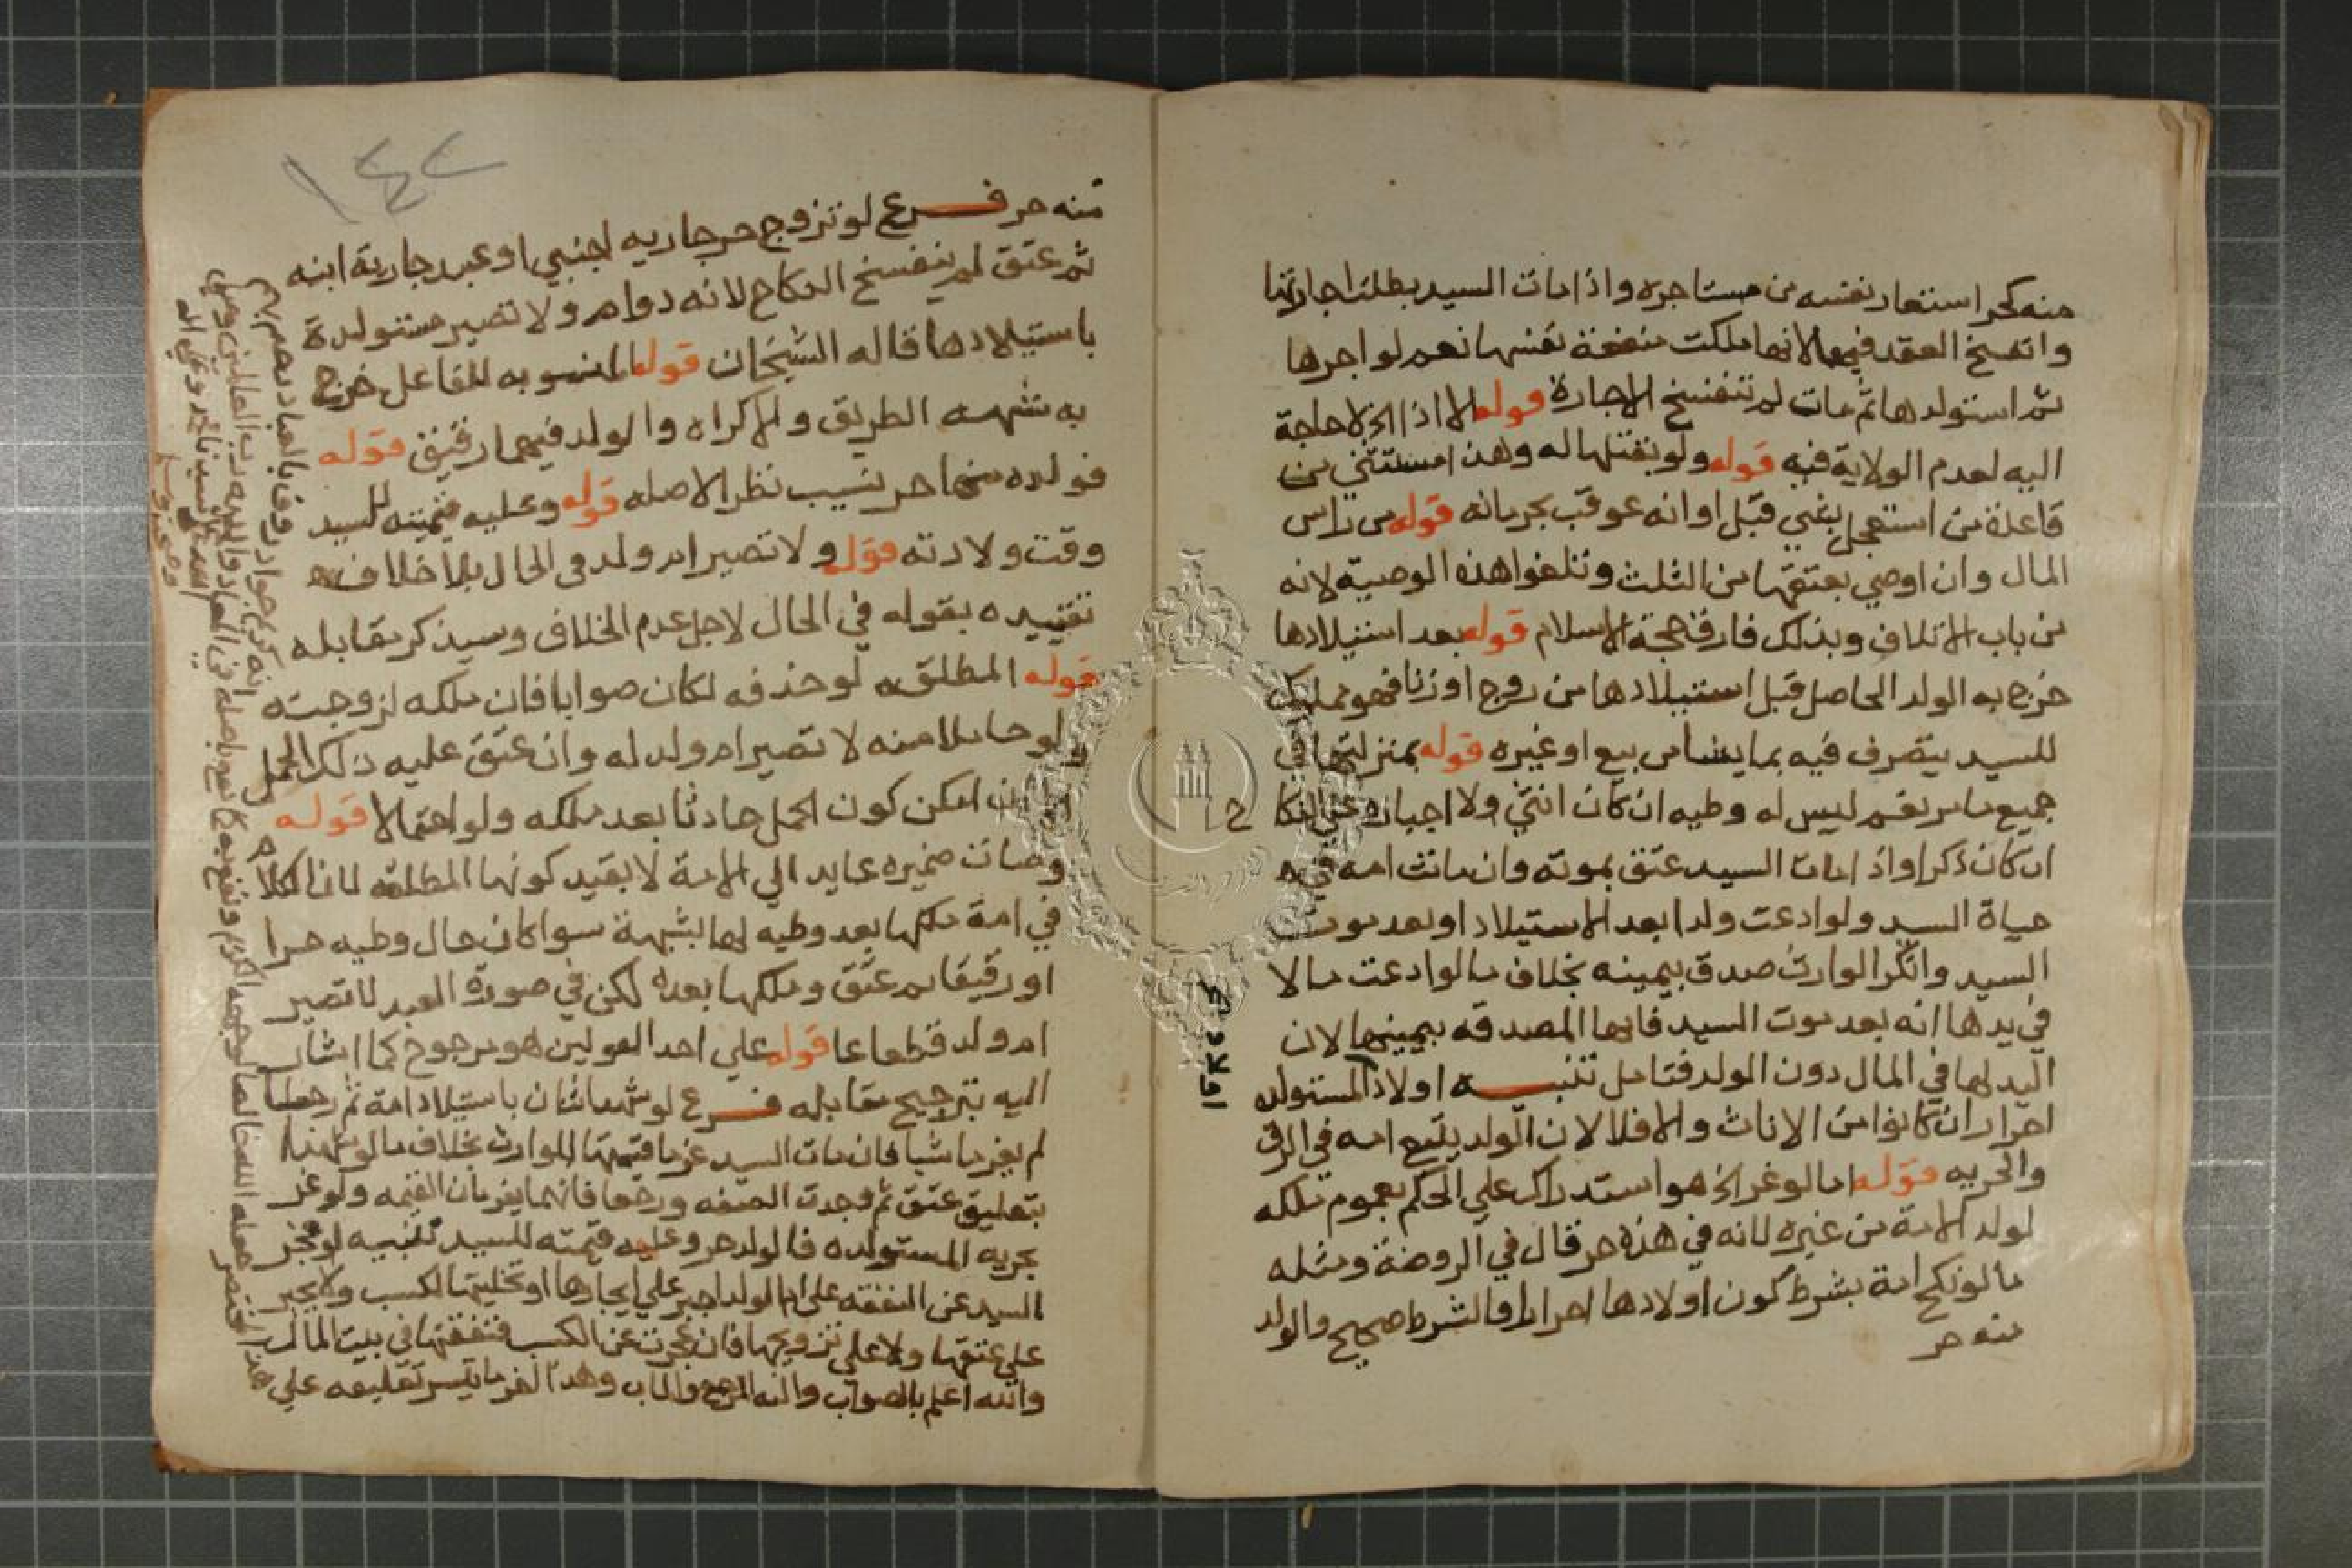 منه كحر استعار نفسه من مستاجره واذا مات السيد بطلت اجارتها
وانفسخ العقد فيهما لانها ملكت منفعة نفسها نعم لو اجرها
ثم استولدها ثم مات لم تنفسخ الاجارة قوله الا اذا الخ لا حاجة
اليه لعدم الولاية فيه قوله ولو بقتلها له وهذا مستثني من
قاعدة من استعجل بشي قبل اوانه عوقب بحرمانه قوله من راس
المال وان اوصي بعتقها من الثلث وتلغوا هذه الوصية لانه
من باب الاتلاف وبذلك فارق حجة الاسلام قوله بعد استيلادها
خرج به الولد الحاصل قبل استيلادها من زوج او زنا فهو مملوك
للسيد يتصرف فيه بما يشا من بيع او غيره قوله بمنزلتها في
جميع ما مر نعم ليس له وطيه ان كان انثي ولا اجباره علي النكاح
ان كان ذكرا واذا مات السيد عتق بموته وان ماتت امه في
حياة السيد ولو ادعت ولدا بعد الاستيلاد او بعد موت
السيد وانكر الوارث صدق بيمينه بخلاف ما لو ادعت مالا
في يدها انه بعد موت السيد فانها المصدقه بيمينها لان
اليد لها في المال دون الولد فتامل تنبيه اولاد المستولده
احرار ان كانوا من الاناث والا فلا لان الولد يتبع امه في الرق
والحريه قوله اما لو غر الخ هو استدراك علي الحكم بعموم ملكه
لولد الامة من غيره لانه في هذه حر قال في الروضة ومثله
ما لو نكح امة بشرط كون اولادها احرارا فالشرط صحيح والولد
منه حر
اولاد
١٤٢
منه حر فرع لو تزوج حر جاريه اجنبي او عبد جارية ابنه
ثم عتق لم ينفسخ النكاح لانه دوام ولا تصير مستولدة
باستيلادها قاله الشيخان قوله المنسوبه للفاعل خرج
به شبهه الطريق والاكراه والولد فيهما رقيق قوله
فولده منها حر نسيب نظرا لاصله قوله وعليه قيمته للسيد
وقت ولادته قوله ولا تصير ام ولد في الحال بلا خلاف
تقييده بقوله في الحال لاجل عدم الخلاف وسيذكر مقابله
قوله المطلقه لو حذفه لكان صوابا فان ملكه لزوجته
ولو حاملا منه لا تصير ام ولد له وان عتق عليه ذلك الحمل
امكن كون الحمل حادثا بعد ملكه ولو احتمالا قوله
وصارت ضميره عايد الي الامة لا بقيد كونها المطلقه لان الكلام
في امة ملكها بعد وطيه لها بشبهة سوا كان حال وطيه حرا
او رقيقا ثم عتق وملكها بعده لكن في صورة العبد لا تصير
ام ولد قطعا قوله علي احد القولين هو مرجوح كما اشار
اليه بترجيح مقابله فرع لو شهد اثنان باستيلاد امة ثم رجعا
لم يغرما شيا فان مات السيد غرما قيمتها للوارث بخلاف ما لو شهدا
بتعليق عتق ثم وجدت الصفه ورجعا فانهما يغرمان القيمه ولو غر
بحريه المستولده فالولد حر وعليه قيمته للسيد تنبيه لو عجز
السيد عن النفقه علي ام الولد اجبر علي ايجارها او تخليتها لكسب ولا يجبر
علي عتقها ولا علي تزويجها فان عجزت عن الكسب فنفقتها في بيت المال
والله اعلم بالصواب واليه المرجع والماب وهذا اخر ما تيسر تعليقه علي
هذا المختصر جعله الله خالصا لوجهه الكريم ونفع به كما نفع باصله
انه كريم جواد روف بالعباد